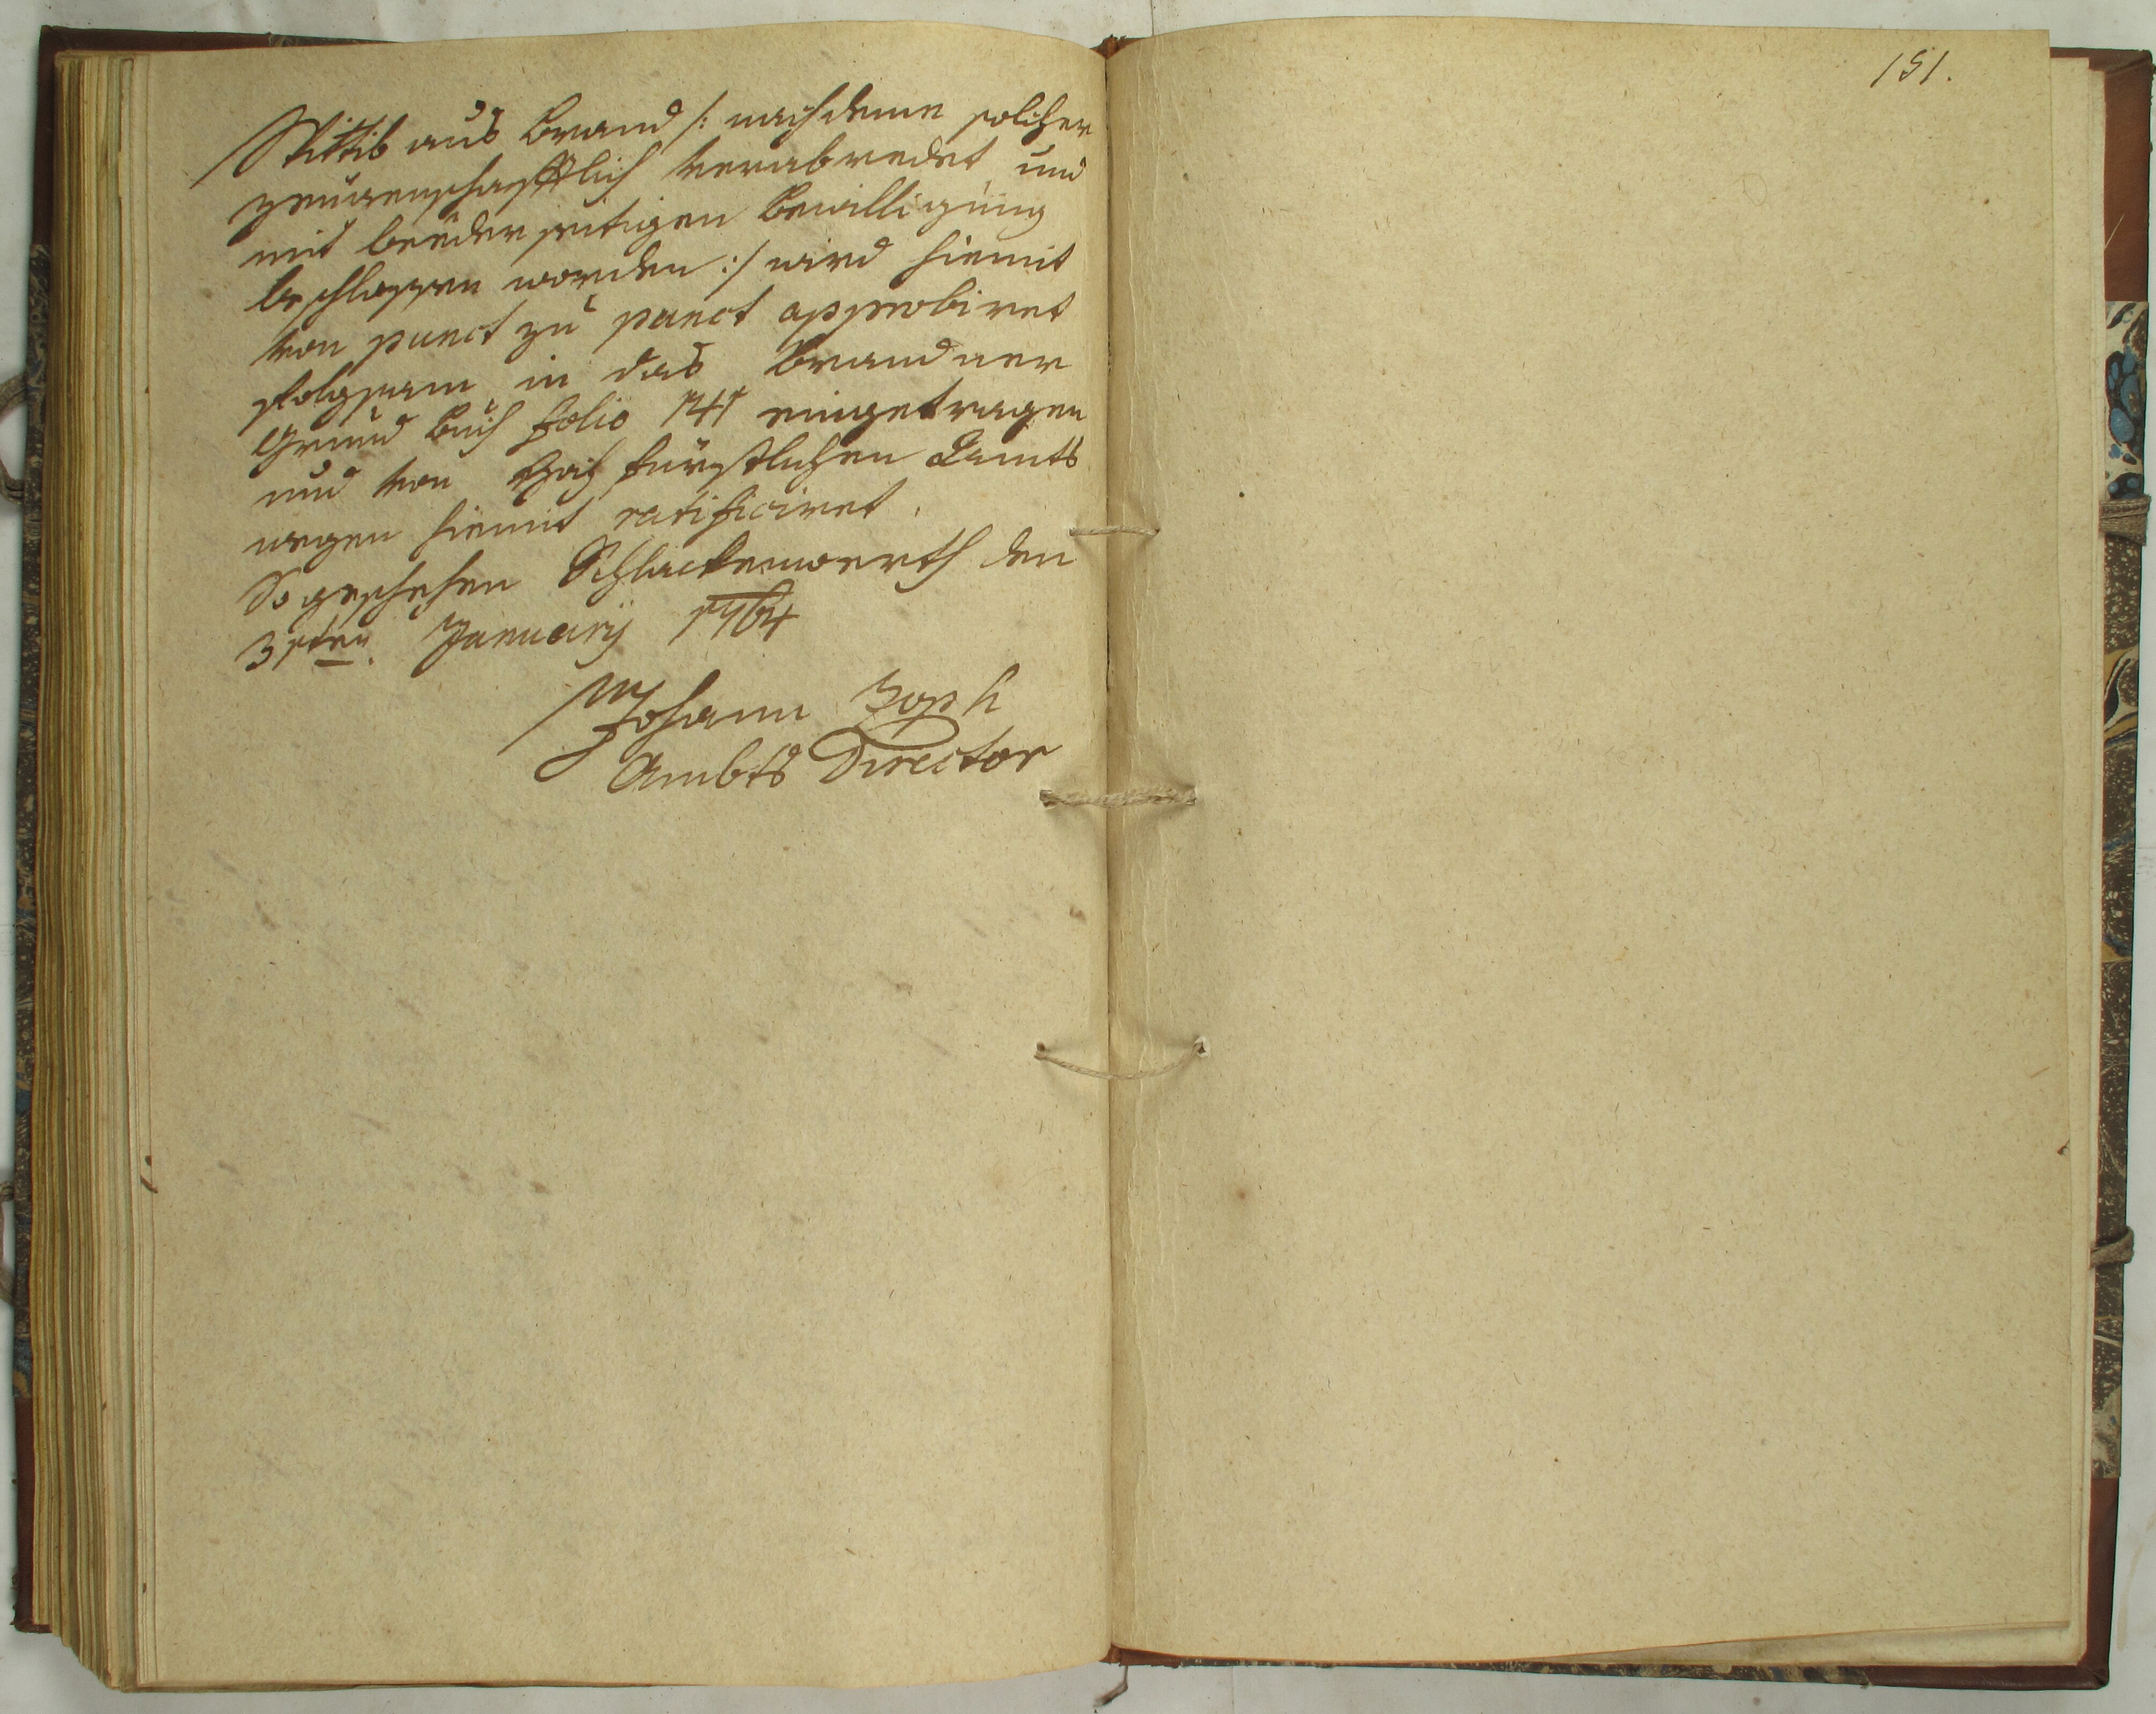 151.
Wittib aus Brand /: nachdeme solcher
zeugenschafftlich verabredet und
mit beederseitigen Bewilligung
beschlossen worden :/ wird hiemit
von punct zu punct approbiret
folgsam in das Brandner
Grund Buch folio 141 eingetragen
und von Hochfürstlichen Amts
wegen hiemit ratificiret.
So geschehen Schlackenwerth den
31ten January 1764
Johann Zoph
Ambts Director